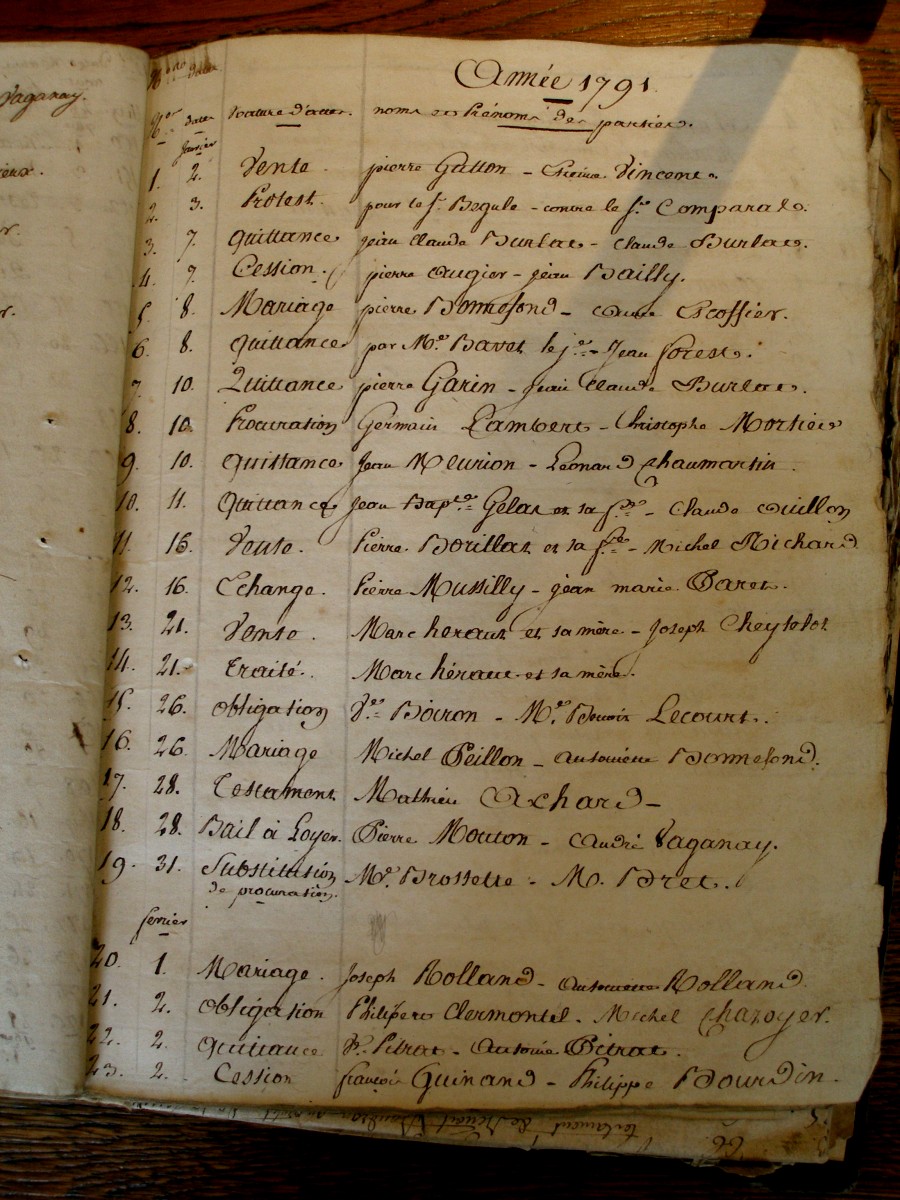 Vaganay.
Nros dates
Année 1791.
Nos dates Nature d'actes noms et Prénoms des parties.
Janvier
1. 2. Vente. pierre Gatton - Vincent.
2. 3. Protest. pour le Sr. Begule - contre le Sr. Comparat.
3. 7. Quittance jean Claude Burlat - Claude Burlat.
4. 7. Cession. pierre augier - jean Bailly.
5. 8. Mariage pierre Bonnefond - Escoffier.
6. 8. Quittance par Me. Bavet le je. - Jean forest.
7. 10. Quittance pierre Garin - Jean Claude Burlat.
8. 10. Procuration Germain Lambert - Christophe Mortier
9. 10. Quittance Jean Meurion - Léonard Chaumartin.
10. 11. Quittance Jean Bapte. Gelas et sa fe. - Claude Ouillon
11. 16. Vente. Pierre Borillat et sa fe. - Michel Richard
12. 16. Echange. Pierre Mussilly - jean marie Paret.
13. 21. Vente. Marc heraut et sa mère - Joseph
14. 21. Traité. Marc héraut et sa mère.
15. 26. Obligation Ve. Boiron - Me. Benoit Lecourt.
16. 26. Mariage Michel Peillon - antoinette Bonnefond.
17. 28. Testament Mathieu Achard -
18. 28. Bail à Loyer. Pierre Mouton - André Vaganay.
19. 31. Substitution Me. Brossette - M. Bret.
de procuration.
fevrier
20. 1. Mariage. Joseph Rolland - antoinette Rolland.
21. 2. Obligation Philipert Clermontel - Michel Chazoyer.
22. 2. Quittance Pitrat - Antoine Pitrat.
23. 2. Cession françois Guinand - Philippe Bourdin.